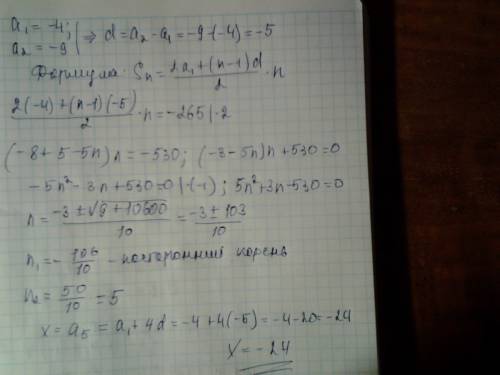 a₁ = -4;
a₂ = -9 } ⇒ d = a₂ - a₁ = -9-(-4) = -5
Формула: Sₙ = (2a₁ + (n-1)d)/2 · n
(2(-4) + (n-1)(-5))/2 · n = -265 |·2
(-8+5-5n)n = -530; (-3-5n)n + 530 = 0
-5n² - 3n + 530 = 0 |·(-1); 5n² + 3n - 530 = 0
n = (-3 ± √(9 + 10600))/10 = (-3 ± 103)/10
n₁ = -106/10 - посторонний корень
n₂ = 50/10 = 5
x = a₅ = a₁ + 4d = -4 + 4(-5) = -4-20 = -24
x = -24